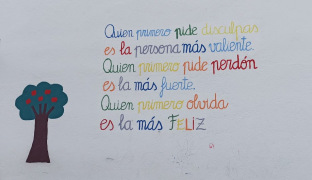 Quien primero pide disculpas
es la persona más valiente.
Quien primero pide perdón
es la más fuerte.
Quien primero olvida
es la más FELIZ